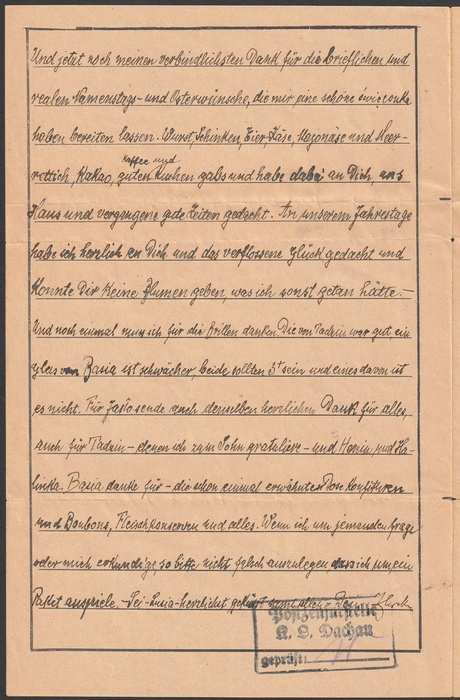 Und jetzt noch meinen verbindlichsten Dank für die brieflichen und
realen Namenstags- und Osterwünsche, die mir eine schöne święconka
haben bereiten lassen. Wurst, Schinken, Eier, Käse, Majonäse und Meer-
Kaffee und
rettich, Kakao, guten Kuchen gabs und habe dabei an Dich, uns
Haus und vergangene gute Zeiten gedacht. An unserem Jahrestage
habe ich herzlich an Dich und das verflossene Glück gedacht und
konnte Dir keine Blumen geben, was ich sonst getan hätte.-
Und noch einmal muss ich für die Brillen danken. Die von Tadzin war gut ein
Glas von Basia ist schwächer, beide sollten 3+ sein und eines davon ist
es nicht. Für sende auch denselben herzlichen Dank für alles,
auch für Tadzin - denen ich zum Sohn gratuliere - und Henin und Ha-
linka. Basia danke für - die schon einmal erwähnte Dose Konfitüren
und Bonbons, Fleischkonserven und alles. Wenn ich um jemanden frage
oder mich erkundige, so bitte nicht falsch auszulegen dass ich um ein
Paket anspiele - Sei Lusia - herzlichst geküsst samt allen Dein
Postzensurstelle
K. L. Dachau
geprüft: